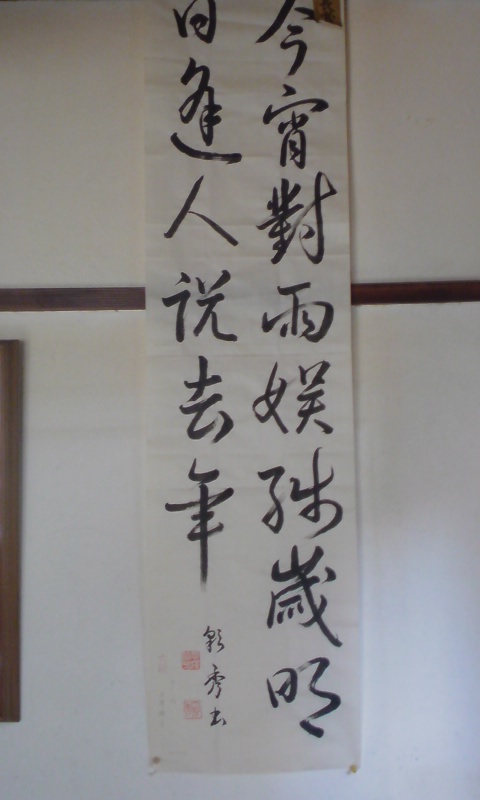 今宵對雨娯殘歳明
日逢人説去年
彩秀書